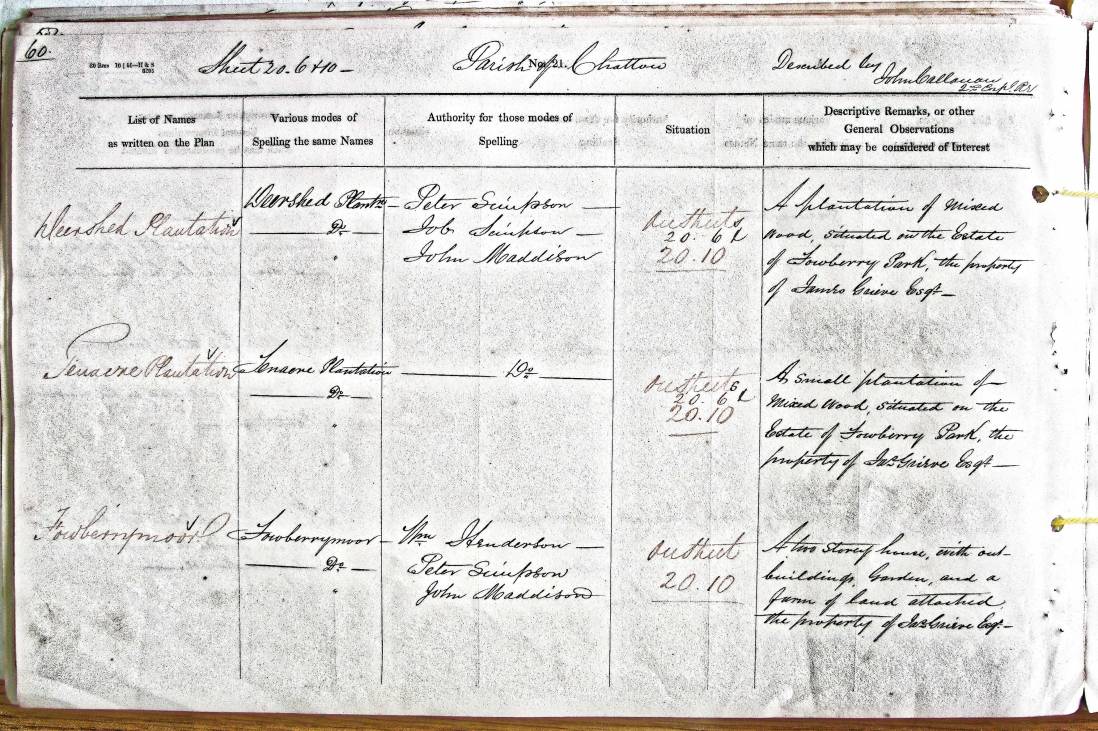 60.
Sheet 20.6 & 10 —
Parish of Chatton
No. 21.
Described by
John Callanan
List of Names
as written on the Plan
Various modes of
Spelling the same Names
Authority for those modes of
Spelling
Situation
Descriptive Remarks, or other
General Observations
which may be considered of Interest
Deershed Plantation
Deershed Plantn
Do
"
Peter Simpson —
Job Simpson —
John Maddison
On sheets
20. 6 &
20.10
A plantation of Mixed
Wood, situated on the Estate
of Fowberry Park, the property
of James Grieve Esqr —
Tenacre Plantation
Tenacre Plantation
Do
"
Do
On sheets
20. 6 &
20.10
A small plantation of
Mixed Wood, situated on the
Estate of Fowberry Park, the
property of Jas Grieve Esqr —
Fowberrymoor
Fowberrymoor —
Do
"
Wm Henderson —
Peter Simpson
John Maddison
On sheet
20.10
A two storey house, with out-
buildings, Garden, and a
farm of land attached
the property of Jas Grieve Esqr. —